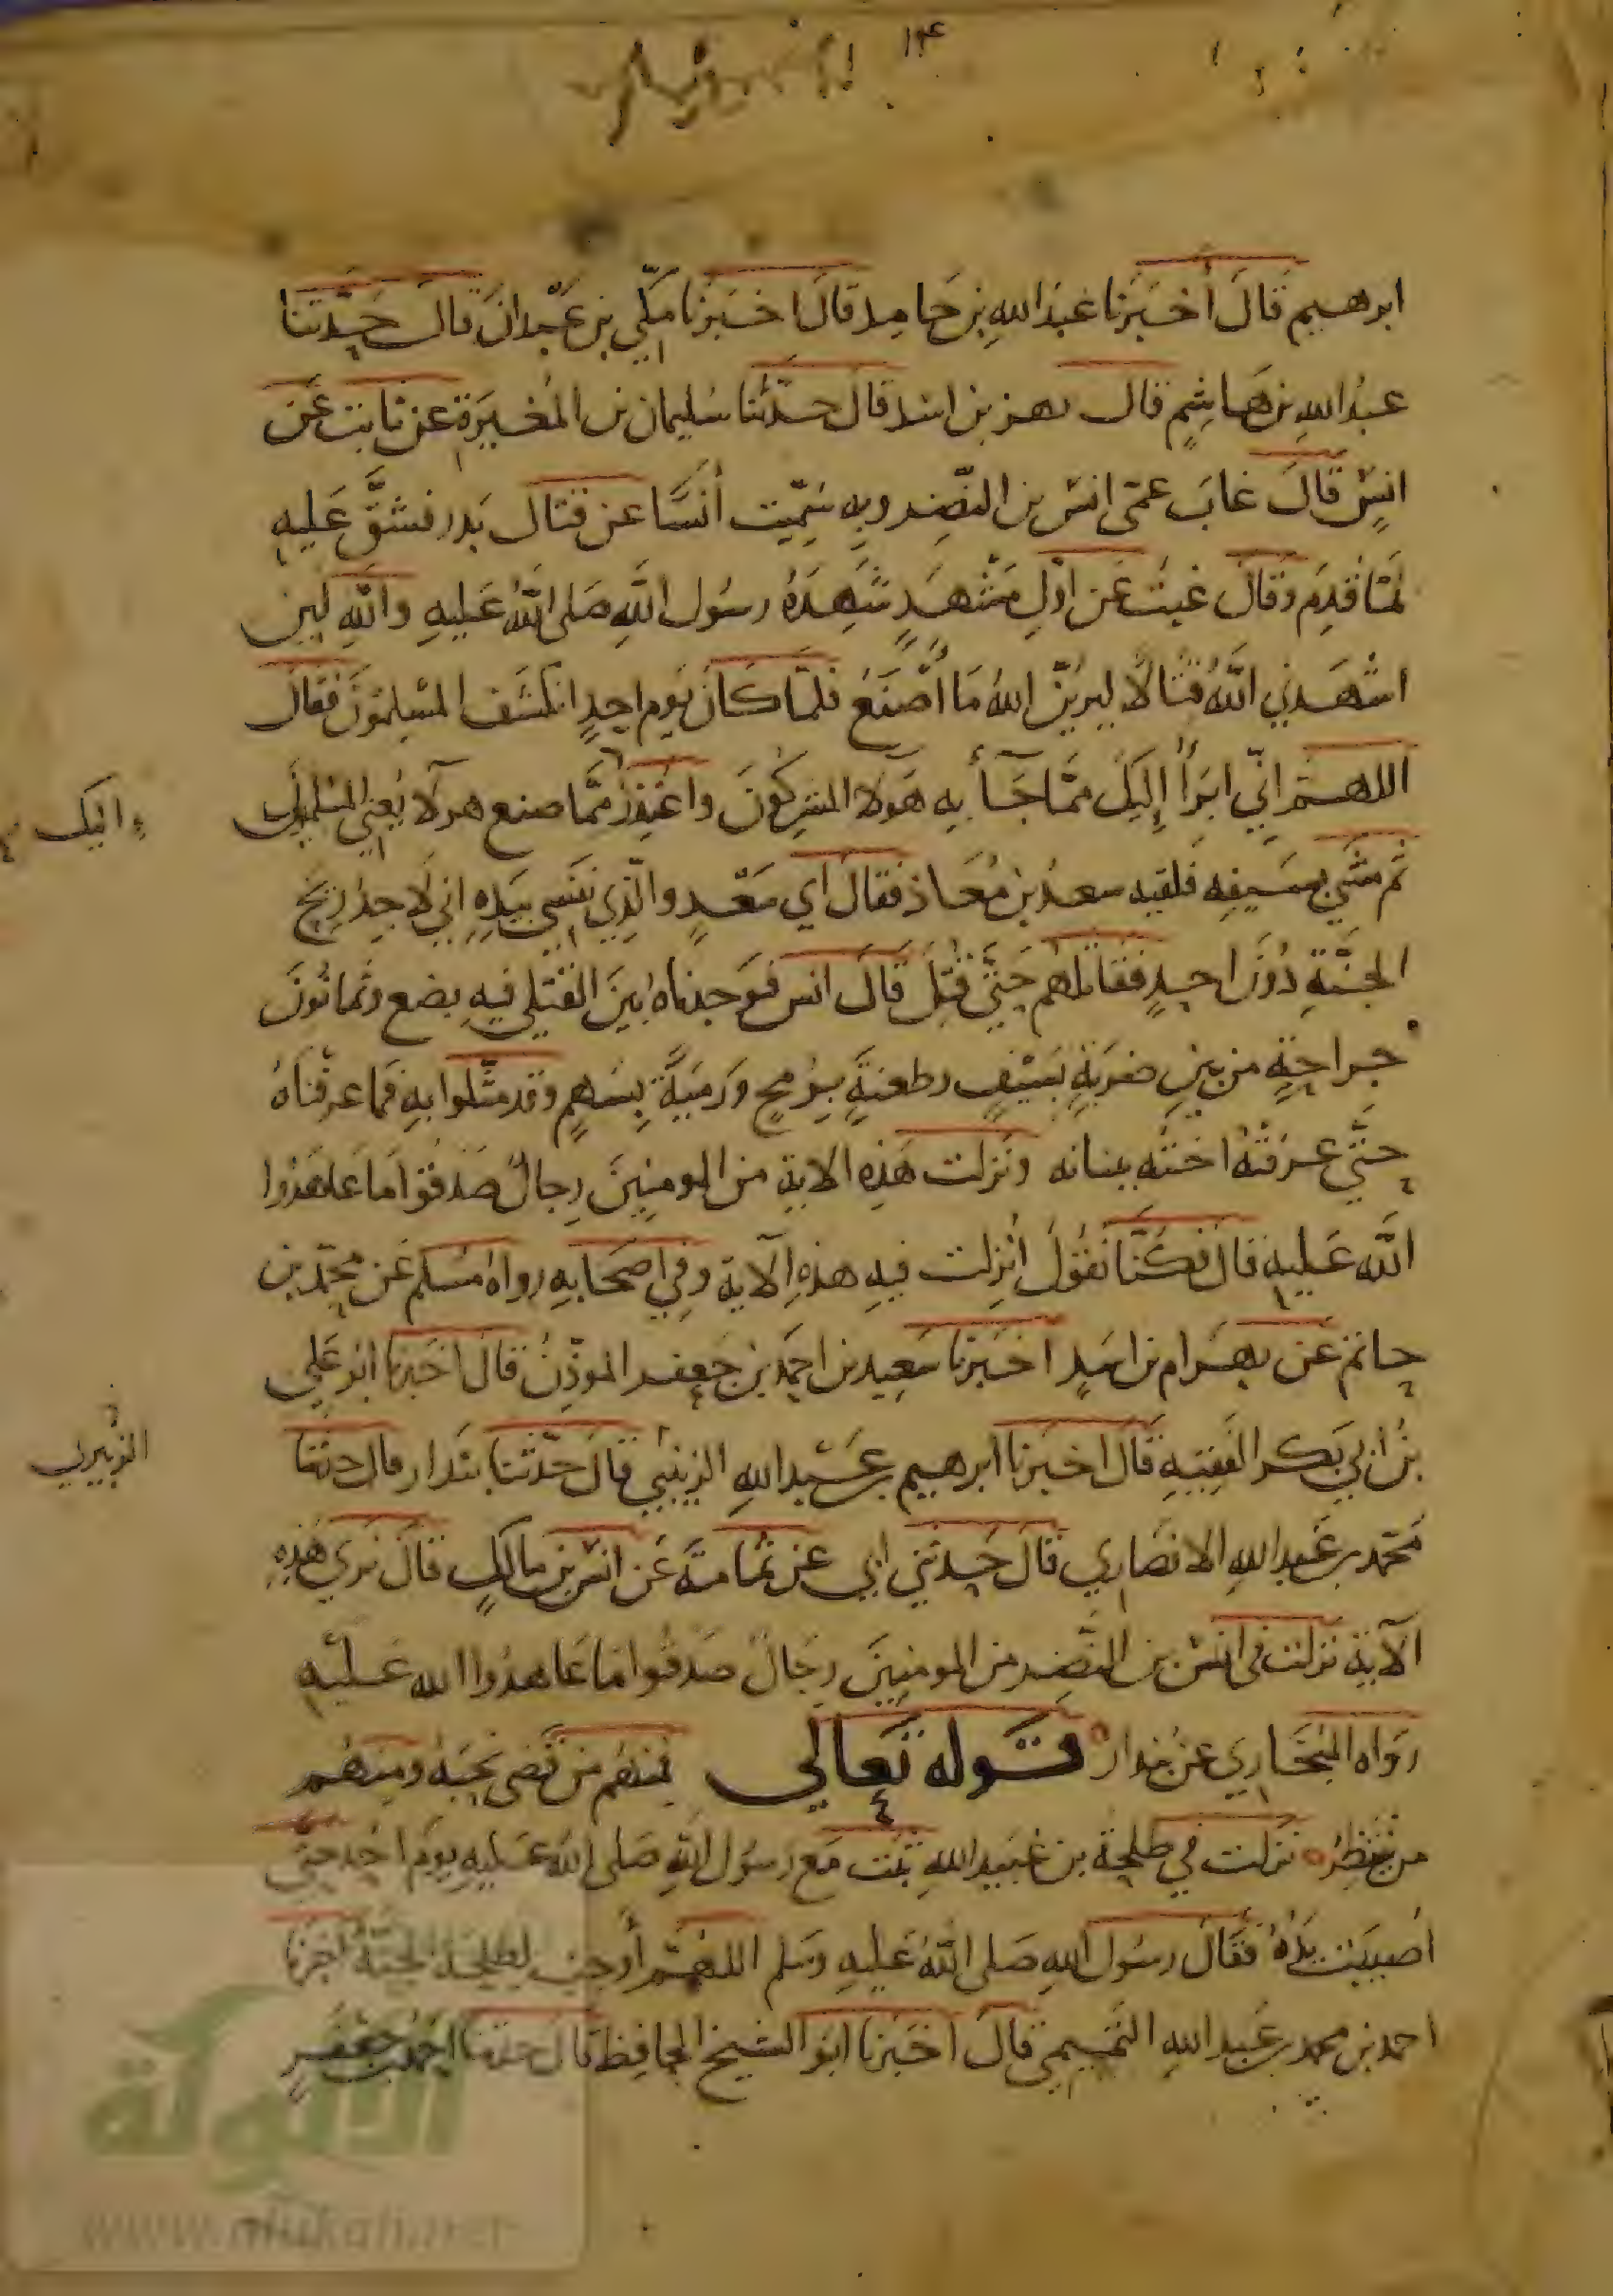 ١٣٤
ابرهيم قَالَ أخبَرَنا عَبدُ اللهِ بن حَامِد قالَ اخبَرَنا مكّي بن عَبْدانَ قال حَدّثنا
عبدُ اللهِ بن هَاشِمٍ قال بهز بن اسَد قال حدّثنا سُليمان بن المُغيرَةِ عن ثابت عَن
انسٍ قَالَ غابَ عمّى انس بن النّضِر وبِهِ سُمّيت أنسًا عن قتال بَدر فشقَّ عَليه
لمّا قَدِمَ وَقالَ غبتُ عَن اوّلِ مَشْهدٍ شَهِدَهُ رسُول اللهِ صَلى اللهُ عَليهِ واللهِ لين
اشْهَدني اللهُ قتالًا ليريَنّ اللهُ مَا أصْنَعُ فلمّا كانَ يَوم احدٍ انكشَف المسْلِمُونَ فقال
اللهم انّي ابَرأُ إليَكَ ممّا جَآأ بِهِ هَولا المشركُونَ واعتذرُ ممّا صنع هولآ يَعني المسْلمين
واليك
ثم مَشَي بسَيفِه فلقيه سعدُ بن مُعَاذ فقال اي سَعْدٍ والّذِي نَفسي بيَدِهِ اني لَاجِدُ رِيحَ
الجنّةِ دُونَ احدٍ فقاتلهم حَتَّي قُتِلَ قَالَ انس فَوَجدناهُ بينَ القَتلي فيهِ بضع وثمانُونَ
جراحةٍ من بين ضربَةٍ بسَيْفٍ وطعنةٍ برُمحٍ ورَميَةً بسَهمٍ وقد مثّلوا بِهِ فما عرفناهُ
حتَّي عرفتْهُ اختُه ببنانه ونَزلت هَذِه الاية من المومِنِينَ رِجالٌ صَدَقوا مَا عَاهَدُوا
الله عَليهِ قال فكنّا نقُولُ انُزِلت فيهِ هذِهِ الآية وفي اصحَابِهِ رواهُ مُسلم عَن محمّد بن
حاتم عَن بهرام بن اسَدٍ اخبَرنا سَعِيد بن احمدَ بن جَعفر الموذّنُ قالَ اخبَرنا ابُو عَلي
بنُ ابي بَكر الفَقِيهِ قَال اخبَرنا ابرهيم بن عَبْد اللهِ الزينبي قالَ حَدّثنا بندار قال حدثنا
الزبيري
محَمّد بن عَبد اللهِ الانصَاري قَالَ حَدثني ابي عَن ثُمامةَ عَن انس بن مالكٍ قَالَ نَري هَذِهِ
الآيةِ نزلت في انسْ بن النّضِر من المومِنينَ رجَالٌ صَدَقُوا مَا عَاهدُوا الله عَليْهِ
رَواه البُخَاري عَن بندار قَوله تَعالي فمنهُم مَن قَضى نحبَهُ ومِنهُم
من ينتظِرُ نزلت في طلحة بن عُبَيد اللهِ ثبَت مَع رسُول اللهِ صَلى اللهُ عَليهِ يوَم احُد حتى
اصُيبَت يَدُهُ فقال رسُول اللهِ صَلى اللهُ عَليهِ وسَلم اللهُمّ أَوجِب لطلحة الجنّةُ اخبرنا
احمد بن محمد بن عَبد اللهِ التمِيمي قالَ اخبَرنا ابُو الشيخ الحافِظ قال حدثنا احمد بن جَعْفَرٍ
الألوكة
www.alukah.net